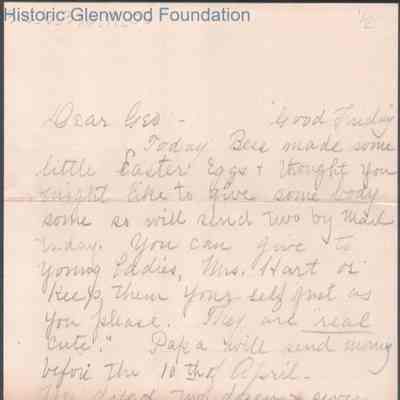 Historic Glenwood Foundation
Dear Geo:- Good Friday
Today Bess made some
little Easter Eggs + thought you
might like to give some body
some so will send two by mail
today. You can give to
young Eddies, Mrs. Hart or
Keep them your self just as
you please. They are "real
cute." Papa will send money
before the 10th of April-